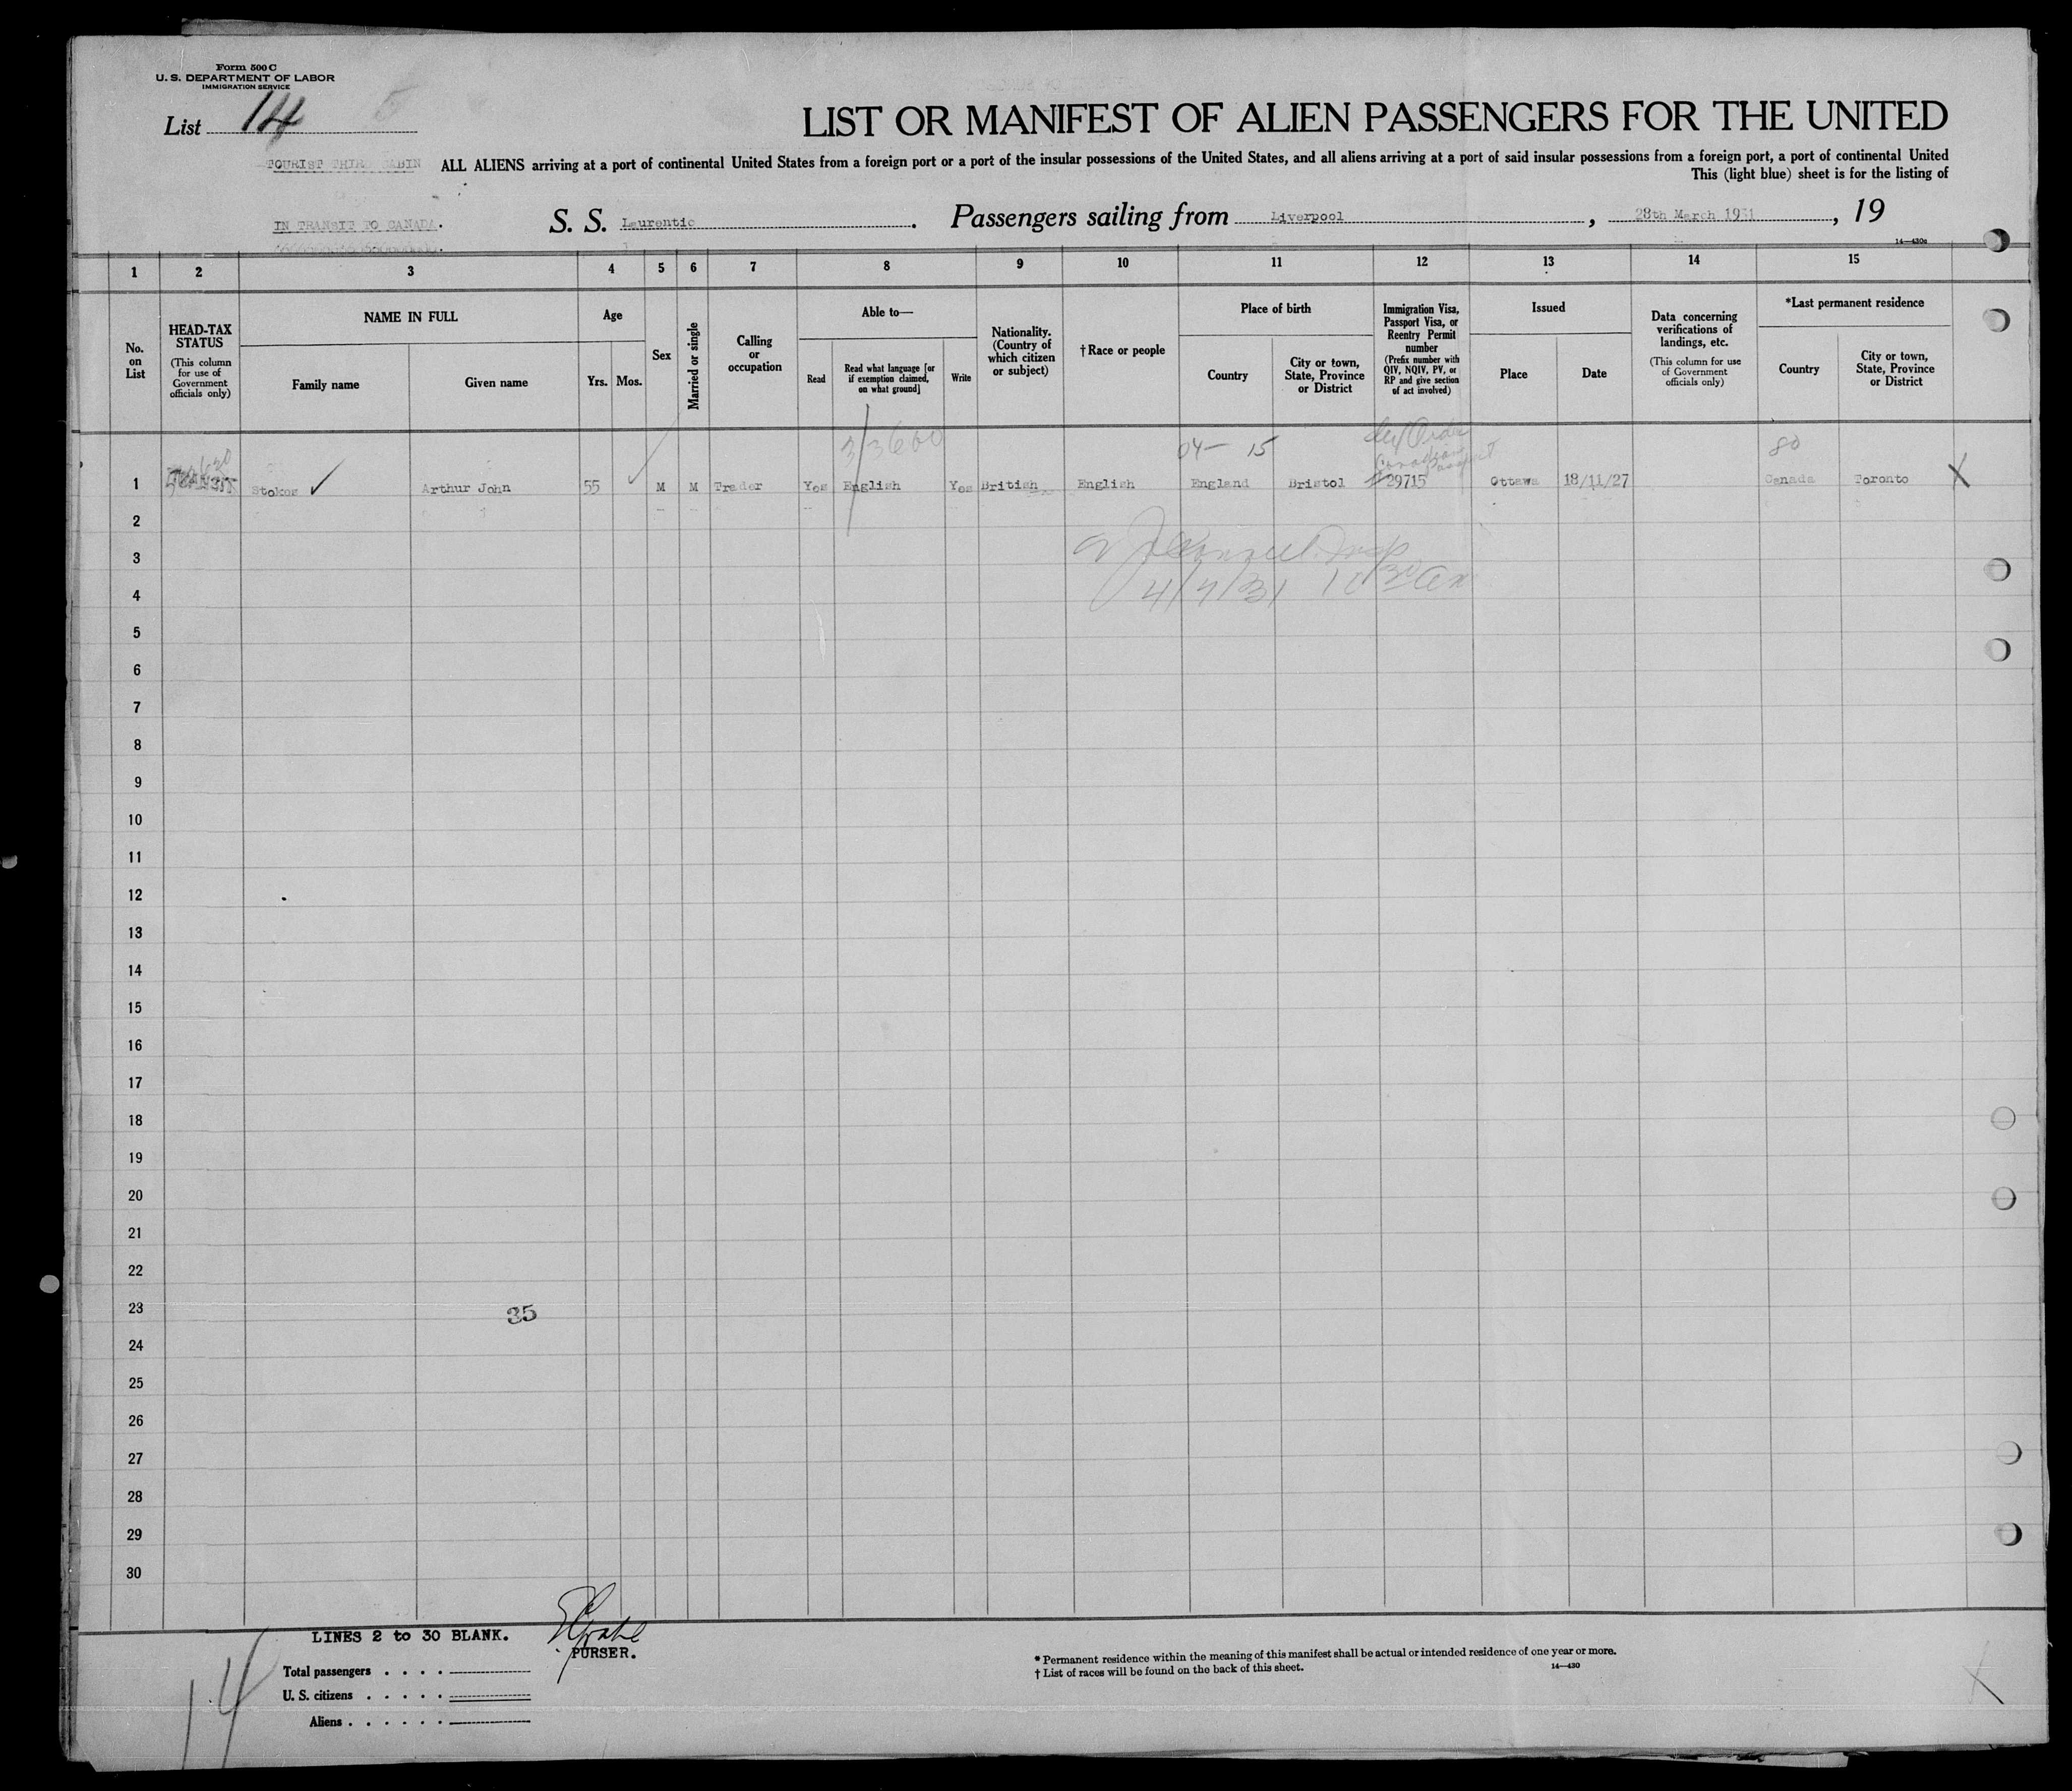 Form 500 C
U. S. DEPARTMENT OF LABOR
IMMIGRATION SERVICE
List 14 5
LIST OR MANIFEST OF ALIEN PASSENGERS FOR THE UNITED
TOURIST THIRD CABIN
ALL ALIENS arriving at a port of continental United States from a foreign port or a port of the insular possessions of the United States, and all aliens arriving at a port of said insular possessions from a foreign port, a port of continental United
This (light blue) sheet is for the listing of
IN TRANSIT TO CANADA.
S. S. Laurentic. Passengers sailing from Liverpool, 28th March 1931, 19
14—430c
1 2 3 4 5 6 7 8 9 10 11 12 13 14 15
No. on List
HEAD-TAX STATUS
(This column for use of Government officials only)
NAME IN FULL
Family name
Given name
Age
Yrs. Mos.
Sex
Married or single
Calling or occupation
Able to—
Read
Read what language [or if exemption claimed, on what ground]
Write
Nationality. (Country of which citizen or subject)
†Race or people
Place of birth
Country
City or town, State, Province or District
Immigration Visa, Passport Visa, or Reentry Permit number
(Prefix number with QIV, NQIV, PV, or RP and give section of act involved)
Issued
Place
Date
Data concerning verifications of landings, etc.
(This column for use of Government officials only)
*Last permanent residence
Country
City or town, State, Province or District
3/3600 04— 15 Canadian Passport 80
1 TRANSIT Stokes ✓ Arthur John 55 ✓ M M Trader Yes English Yes British English England Bristol 29715 Ottawa 18/11/27 Canada Toronto X
2
3
4 4/7/31 10 30 am
5
6
7
8
9
10
11
12
13
14
15
16
17
18
19
20
21
22
23 35
24
25
26
27
28
29
30
LINES 2 to 30 BLANK.
PURSER.
Total passengers . . . .
U. S. citizens . . . . .
Aliens . . . . . .
14
* Permanent residence within the meaning of this manifest shall be actual or intended residence of one year or more.
† List of races will be found on the back of this sheet.
14—430
X